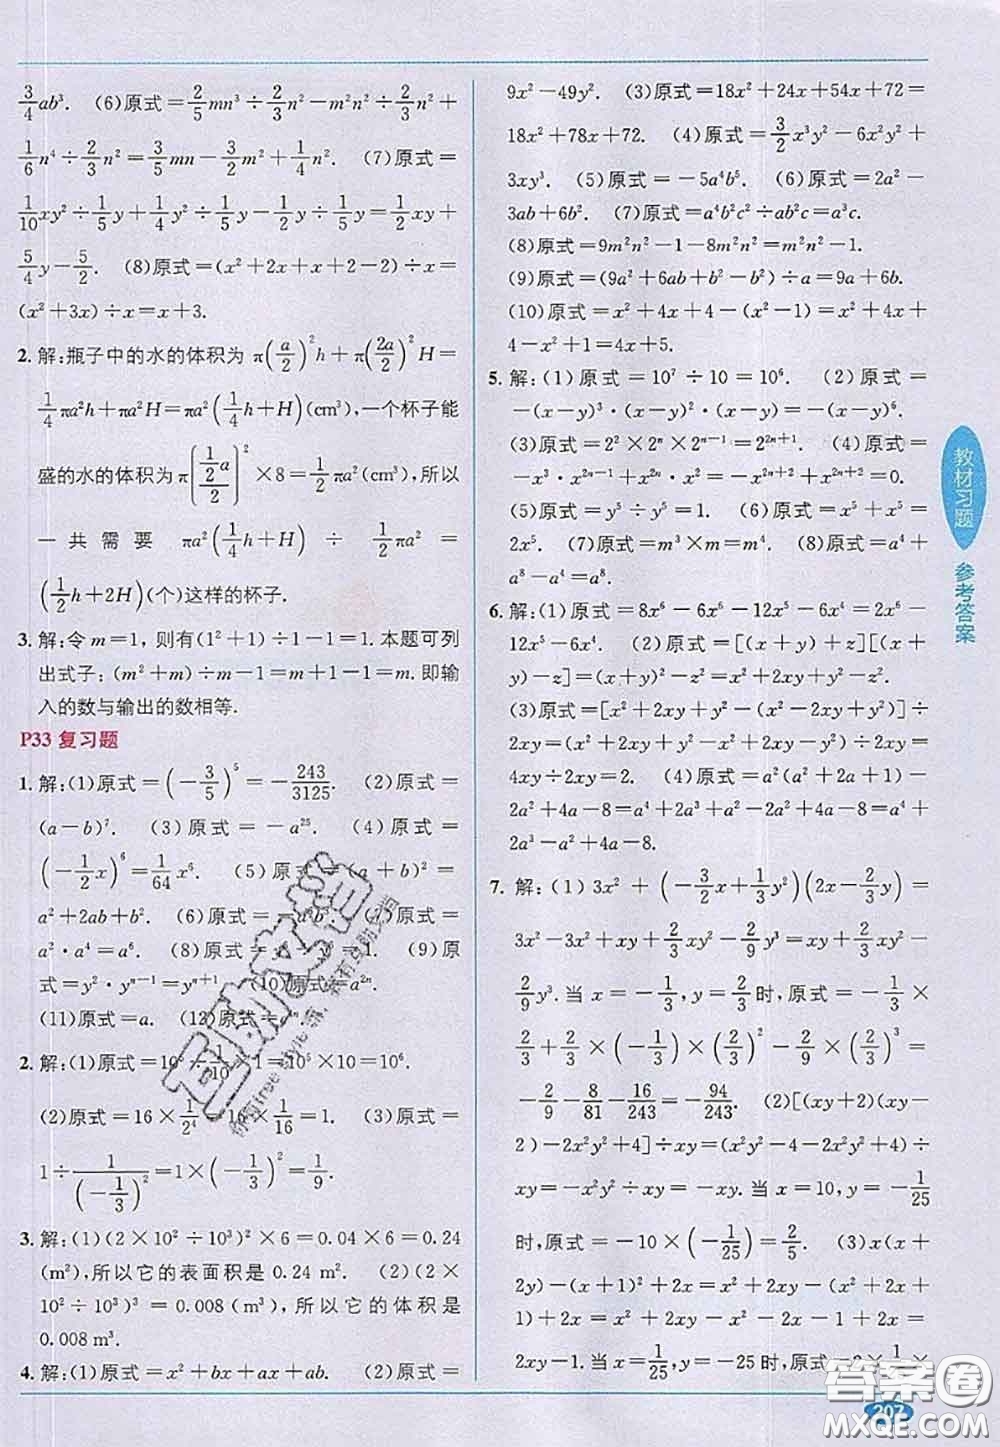 3/4 ab³. (6)原式=2/5 mn³÷2/3 n²-m²n²÷2/3 n²+
1/6 n⁴÷2/3 n²=3/5 mn-3/2 m²+1/4 n². (7)原式=
1/10 xy²÷1/5 y+1/4 y²÷1/5 y-1/2 y÷1/5 y=1/2 xy+
5/4 y-5/2. (8)原式=(x²+2x+x+2-2)÷x=
(x²+3x)÷x=x+3.
2. 解:瓶子中的水的体积为 π(a/2)²h+π(2a/2)²H=
1/4 πa²h+πa²H=πa²(1/4 h+H)(cm³),一个杯子能
盛的水的体积为π[(1/2 a)/2]²×8=1/2 πa²(cm³),所以
一共需要 πa²(1/4 h+H)÷1/2 πa²=
(1/2 h+2H)(个)这样的杯子.
3. 解:令m=1,则有(1²+1)÷1-1=1.本题可列
出式子:(m²+m)÷m-1=m+1-1=m.即输
入的数与输出的数相等.
P33 复习题
1. 解:(1)原式=(-3/5)⁵=-243/3125. (2)原式=
(a-b)⁷. (3)原式=-a²⁵. (4)原式=
(-1/2 x)⁶=1/64 x⁶. (5)原式=(a+b)²=
a²+2ab+b². (6)原式=
a²·a⁴=a⁶. (8)原式= 1. (9)原
式=y²·yⁿ⁻¹=yⁿ⁺¹. (10)原式=a²ⁿ.
(11)原式=a. (12)原式=
2. 解:(1)原式=10⁵÷1/10÷1=10⁵×10=10⁶.
(2)原式=16×1/2⁴=16×1/16=1. (3)原式=
1÷1/(-1/3)²=1×(-1/3)²=1/9.
3. 解:(1)(2×10²÷10³)²×6=0.04×6=0.24
(m²),所以它的表面积是0.24 m². (2)(2×
10²÷10³)³=0.008(m³),所以它的体积是
0.008 m³.
4. 解:(1)原式=x²+bx+ax+ab. (2)原式=
9x²-49y². (3)原式=18x²+24x+54x+72=
18x²+78x+72. (4)原式=3/2 x³y²-6x²y²+
3xy³. (5)原式=-5a⁴b⁵. (6)原式=2a²-
3ab+6b². (7)原式=a⁴b²c²÷ab²c=a³c.
(8)原式=9m²n²-1-8m²n²=m²n²-1.
(9)原式=(9a²+6ab+b²-b²)÷a=9a+6b.
(10)原式=x²+4x+4-(x²-1)=x²+4x+
4-x²+1=4x+5.
5. 解:(1)原式=10⁷÷10=10⁶. (2)原式=
-(x-y)³·(x-y)²·(x-y)=-(x-y)⁶.
(3)原式=2²×2ⁿ×2ⁿ⁻¹=2²ⁿ⁺¹. (4)原式=
-x³·x²ⁿ⁻¹+x²ⁿ·x²=-x²ⁿ⁺²+x²ⁿ⁺²=0.
(5)原式=y⁵÷y⁵=1. (6)原式=x⁵+x⁵=
2x⁵. (7)原式=m³×m=m⁴. (8)原式=a⁴+
a⁸-a⁴=a⁸.
6. 解:(1)原式=8x⁶-6x⁶-12x⁵-6x⁴=2x⁶-
12x⁵-6x⁴. (2)原式=[(x+y)+z][(x+
y)-z]=(x+y)²-z²=x²+2xy+y²-z².
(3)原式=[x²+2xy+y²-(x²-2xy+y²)]÷
2xy=(x²+2xy+y²-x²+2xy-y²)÷2xy=
4xy÷2xy=2. (4)原式=a²(a²+2a+1)-
2a²+4a-8=a⁴+2a³+a²-2a²+4a-8=a⁴+
2a³-a²+4a-8.
7. 解:(1)3x²+(-3/2 x+1/3 y²)(2x-2/3 y)=
3x²-3x²+xy+2/3 xy²-2/9 y³=xy+2/3 xy²-
2/9 y³.当 x=-1/3,y=2/3时,原式=-1/3×
2/3+2/3×(-1/3)×(2/3)²-2/9×(2/3)³=
-2/9-8/81-16/243=-94/243. (2)[(xy+2)(xy-
2)-2x²y²+4]÷xy=(x²y²-4-2x²y²+4)÷
xy=-x²y²÷xy=-xy.当 x=10,y=-1/25
时,原式=-10×(-1/25)=2/5. (3)x(x+
2y)-(x+1)²+2x=x²+2xy-(x²+2x+
1)+2x=x²+2xy-x²-2x-1+2x=
2xy-1.当 x=1/25,y=-25时,原式=2×1/25×
教材习题
参考答案
207
答案圈
MXQE.COM